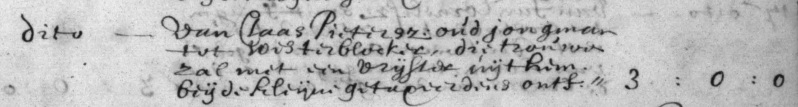 dito — Van Claas Pietersz: oud jongman
tot Westerblocker die trouwen
zal met een Vrijster uijt hem
beijde kleijne getaxeerdens ontf. " 3 : 0 : 0